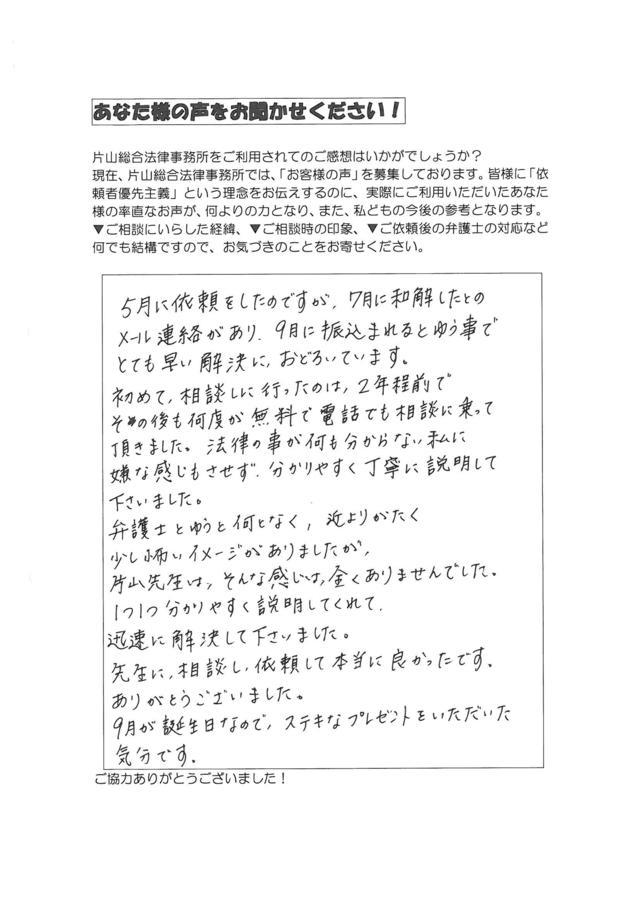 あなた様の声をお聞かせください！
片山総合法律事務所をご利用されてのご感想はいかがでしょうか？
現在、片山総合法律事務所では、「お客様の声」を募集しております。皆様に「依
頼者優先主義」という理念をお伝えするのに、実際にご利用いただいたあなた
様の率直なお声が、何よりの力となり、また、私どもの今後の参考となります。
▼ご相談にいらした経緯、▼ご相談時の印象、▼ご依頼後の弁護士の対応など
何でも結構ですので、お気づきのことをお寄せください。
5月に依頼をしたのですが、7月に和解したとの
メール連絡があり、9月に振込まれるとゆう事で
とても早い解決に、おどろいています。
初めて、相談しに行ったのは、2年程前で
その後も何度か無料で電話でも相談に乗って
頂きました。法律の事が何も分からない私に
嫌な感じもさせず、分かりやすく丁寧に説明して
下さいました。
弁護士とゆうと何となく、近よりがたく
少し怖いイメージがありましたが、
片山先生は、そんな感じは、全くありませんでした。
1つ1つ分かりやすく説明してくれて、
迅速に解決して下さいました。
先生に、相談し、依頼して本当に良かったです。
ありがとうございました。
9月が誕生日なので、ステキなプレゼントをいただいた
気分です。
ご協力ありがとうございました！